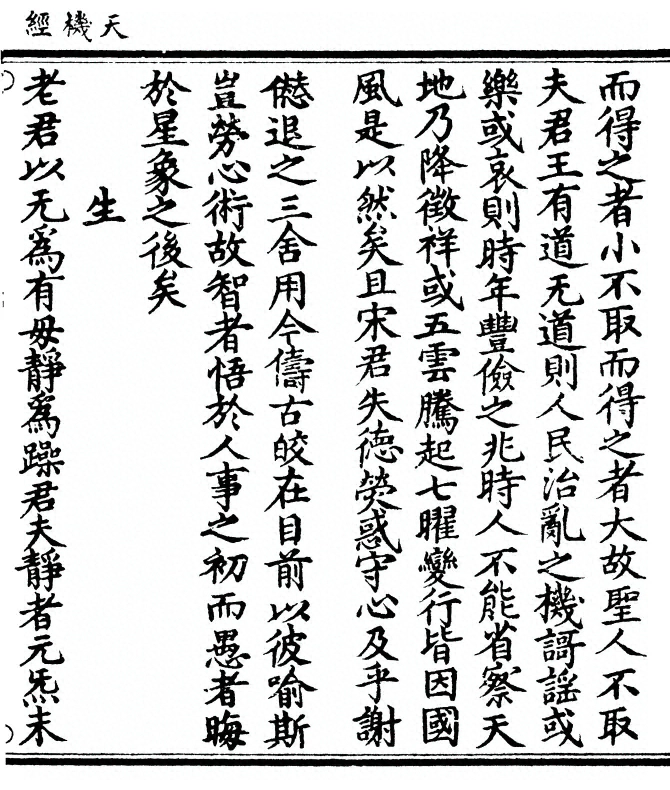 天機經
而得之者小不取而得之者大故聖人不取
夫君王有道无道則人民治亂之機謌謡或
樂或哀則時年豐儉之兆時人不能省察天
地乃降徵祥或五雲騰起七曜變行皆因國
風是以然矣且宋君失德熒惑守心及乎謝
㒃退之三舍用今儔古皎在目前以彼喻斯
豈勞心術故智者悟於人事之初而愚者晦
於星象之後矣
生
老君以无為有母靜為躁君夫靜者元炁未